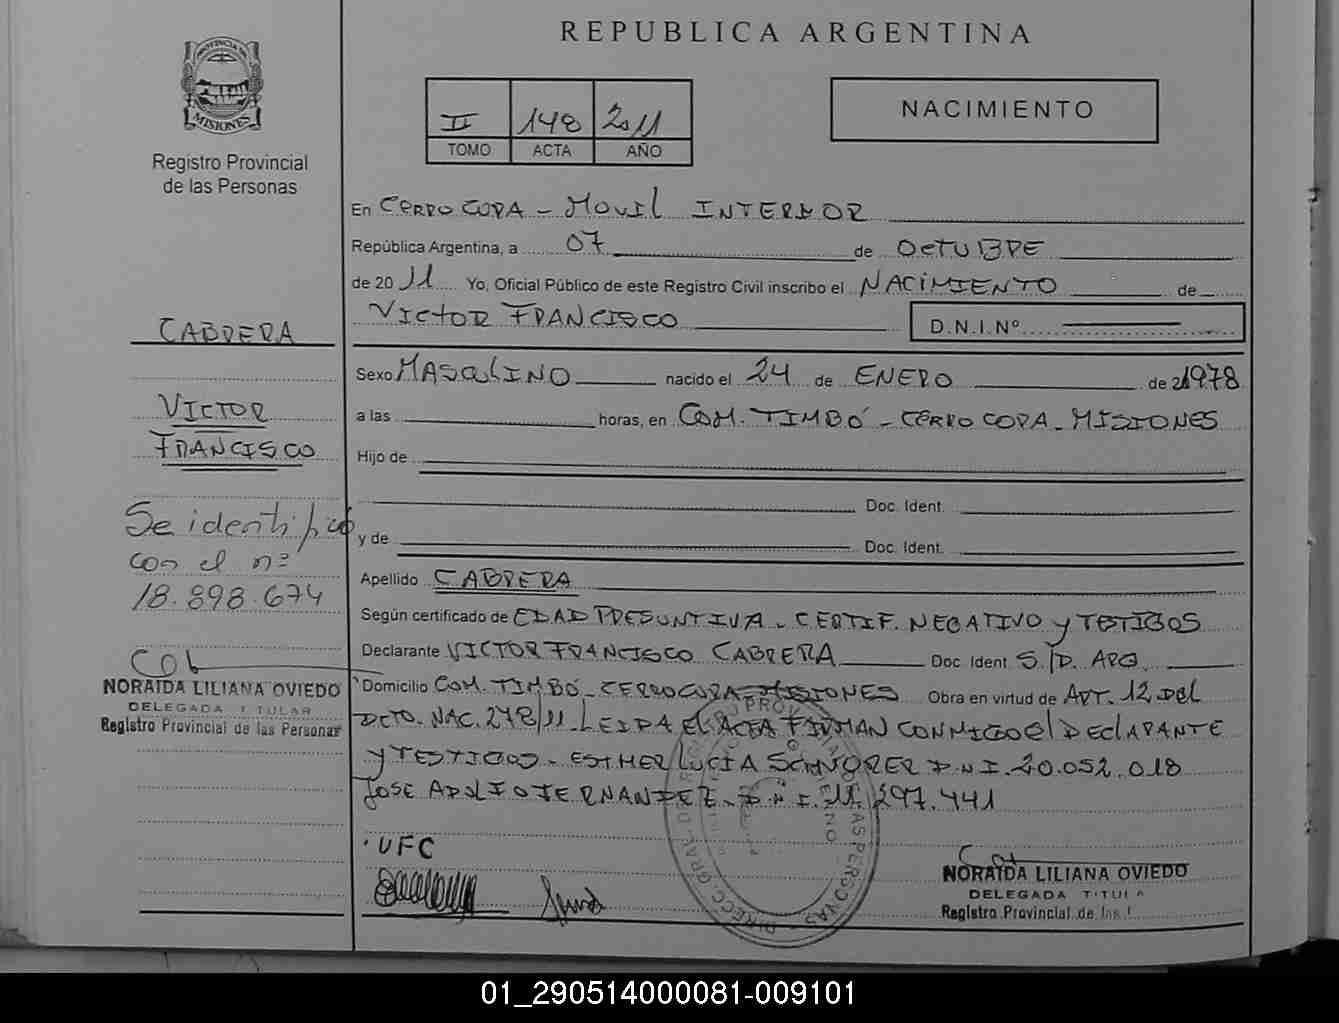 REPUBLICA ARGENTINA
PROVINCIA DE
MISIONES
Registro Provincial
de las Personas
II 148 2011
TOMO ACTA AÑO
NACIMIENTO
En CERRO CORA - MOVIL INTERIOR
República Argentina, a 07 de OCTUBRE
de 2011 Yo, Oficial Público de este Registro Civil inscribo el NACIMIENTO de
VICTOR FRANCISCO D.N.I.Nº
CABRERA
VICTOR
FRANCISCO
Se identificó
con el nº
18.898.674
NORAIDA LILIANA OVIEDO
DELEGADA TITULAR
Registro Provincial de las Personas
Sexo MASCULINO nacido el 24 de ENERO de 1978
a las horas, en COM. TIMBÓ - CERRO CORA - MISIONES
Hijo de
Doc. Ident.
y de Doc. Ident.
Apellido CABRERA
Según certificado de EDAD PRESUNTIVA - CERTIF. NEGATIVO y TESTIGOS
Declarante VICTOR FRANCISCO CABRERA Doc. Ident. S/D. ARG.
Domicilio COM. TIMBÓ - CERRO CORA - MISIONES Obra en virtud de ART. 12 DEL
DCTO. NAC. 278/11 - LEIDA El ACTA FIRMAN CONMIGO el DEClARANTE
y TESTIGOS - ESTHER LUCIA D.N.I. 20.052.018
JOSE ADOLFO FERNANDEZ - D.N.I. 11.297.441
UFC
NORAIDA LILIANA OVIEDO
DELEGADA TITULA
Registro Provincial de las
01_290514000081-009101